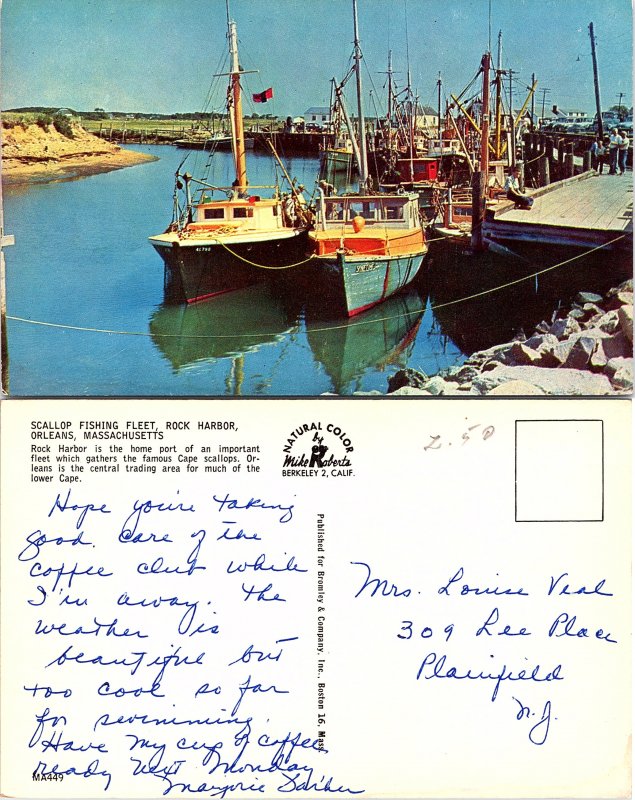 SCALLOP FISHING FLEET, ROCK HARBOR,
ORLEANS, MASSACHUSETTS
Rock Harbor is the home port of an important
fleet which gathers the famous Cape scallops. Or-
leans is the central trading area for much of the
lower Cape.
Hope you're taking
good care of the
coffee club while
I'm away. The
weather is
beautiful but
too cool so far
for swimming.
Have my cup of coffee
ready next Monday
Marjorie
MA449
NATURAL COLOR
by
Mike Roberts
BERKELEY 2, CALIF.
Published for Bromley & Company, Inc., Boston 16, Mass.
2.50
Mrs. Louise Veal
309 Lee Place
Plainfield
N.J.